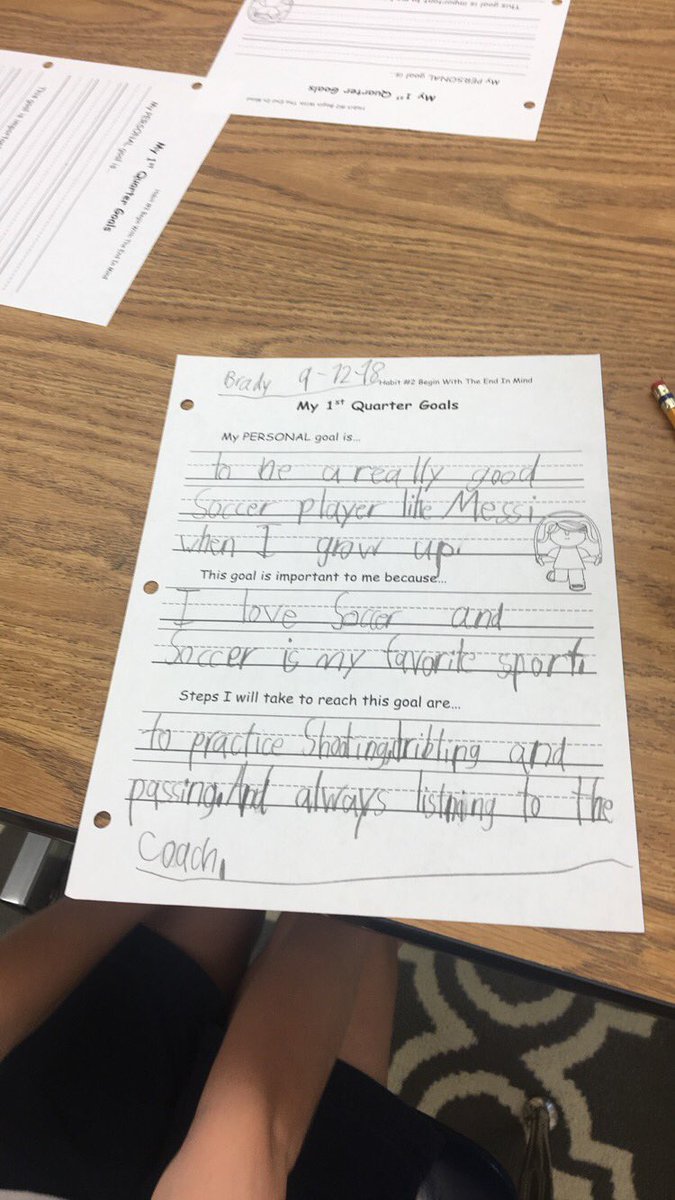 Habit #2 Begin With The End In Mind
My 1st Quarter Goals
My PERSONAL goal is...
This goal is important to me
Habit #2 Begin With The End In Mind
My 1st Quarter Goals
My PERSONAL goal is...
This goal is important
Brady 9-12-18 Habit #2 Begin With The End In Mind
My 1st Quarter Goals
My PERSONAL goal is...
to be a really good
Soccer player like Messi
when I grow up.
This goal is important to me because...
I love Soccer and
Soccer is my favorite sport.
Steps I will take to reach this goal are...
to practice Shooting,dribling and
passing.And always listning to the
Coach.